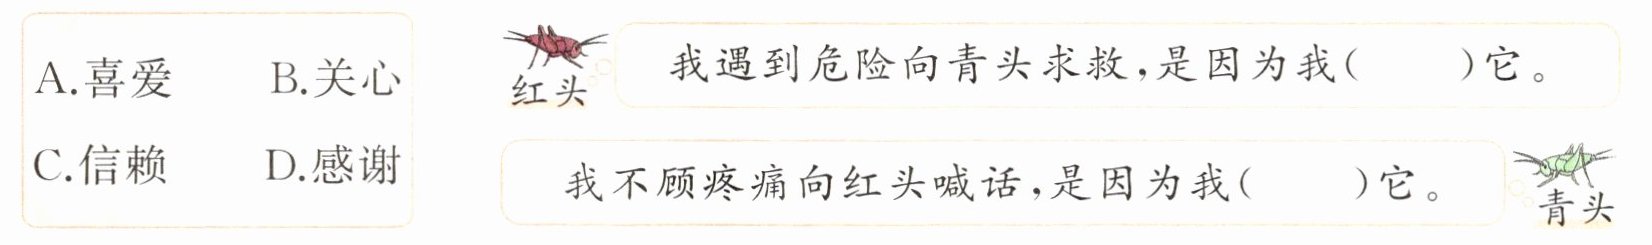 A.喜爱 B.关心
C.信赖 D.感谢
红头
我遇到危险向青头求救,是因为我( )它。
我不顾疼痛向红头喊话,是因为我( )它。
青头